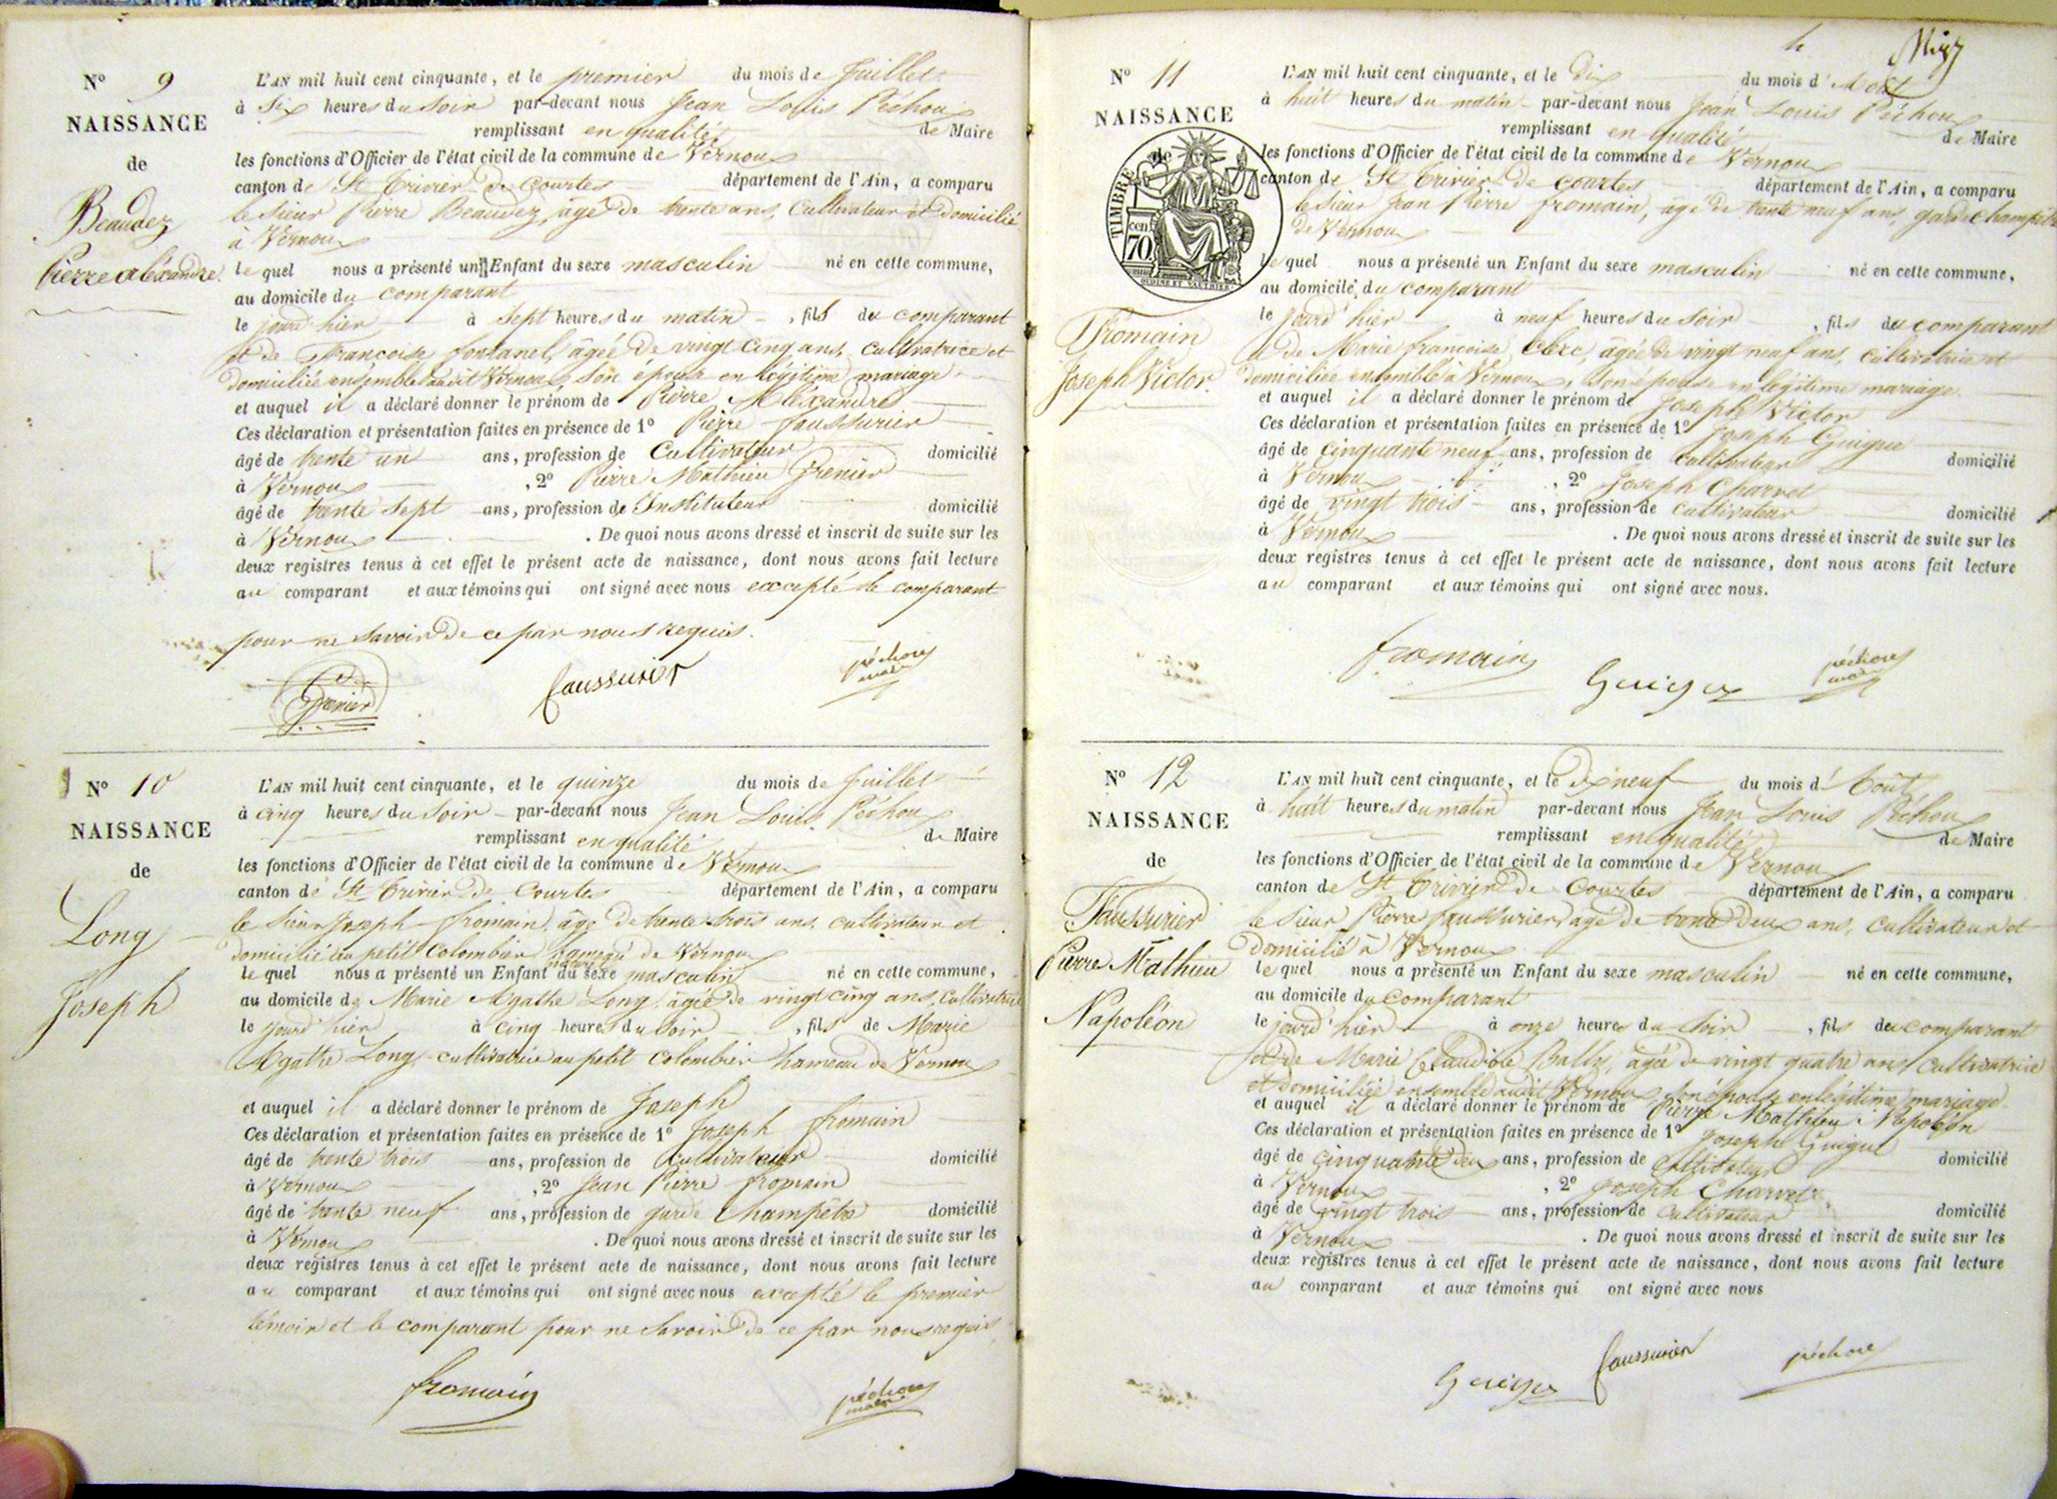 N° 9
NAISSANCE
de
Beaudez
Pierre Aléxandre
L'AN mil huit cent cinquante, et le premier du mois de Juillet
à Six heures du Soir par-devant nous Jean Louis Péchoux
remplissant en qualité de Maire
les fonctions d'Officier de l'état civil de la commune de Vernoux
canton de St Trivier de Courtes département de l'Ain, a comparu
le Sieur Pierre Beaudez, âgé de trente ans, Cultivateur et domicilié
à Vernoux
le quel nous a présenté un Enfant du sexe masculin né en cette commune,
au domicile du comparant
le jourd'hier à Sept heures du matin, fils du comparant
et de Francoise Fontanel, âgée de vingt Cinq ans, Cultivatrice et
domiciliée ensemble audit Vernoux, Son épouse en légitime mariage
et auquel il a déclaré donner le prénom de Pierre Aléxandre
Ces déclaration et présentation faites en présence de 1° Pierre Faussurier
âgé de trente un ans, profession de Cultivateur domicilié
à Vernoux, 2° Pierre Mathieu Grenier
âgé de trente sept ans, profession de Instituteur domicilié
à Vernoux. De quoi nous avons dressé et inscrit de suite sur les
deux registres tenus à cet effet le présent acte de naissance, dont nous avons fait lecture
au comparant et aux témoins qui ont signé avec nous excepté le comparant
pour ne Savoir de ce par nous requis.
Grenier
Faussurier
péchoux
maire
N° 10
NAISSANCE
de
Long
Joseph
L'AN mil huit cent cinquante, et le quinze du mois de Juillet
à cinq heures du Soir par-devant nous Jean Louis Péchoux
remplissant en qualité de Maire
les fonctions d'Officier de l'état civil de la commune de Vernoux
canton de St Trivier de Courtes département de l'Ain, a comparu
le Sieur Joseph Fromain, âgé de trente trois ans, cultivateur et
domicilié au petit Colombier hameau de Vernoux
le quel nous a présenté un Enfant naturel du sexe masculin né en cette commune,
au domicile de Marie Agathe Long, âgée de vingt cinq ans, Cultivatrice
le jourd'hier à cinq heures du Soir, fils de Marie
Agathe Long cultivatrice au petit Colombier hameau de Vernoux
et auquel il a déclaré donner le prénom de Joseph
Ces déclaration et présentation faites en présence de 1° Joseph Fromain
âgé de trente trois ans, profession de Cultivateur domicilié
à Vernoux, 2° Jean Pierre Fromain
âgé de trente neuf ans, profession de garde Champêtre domicilié
à Vernoux. De quoi nous avons dressé et inscrit de suite sur les
deux registres tenus à cet effet le présent acte de naissance, dont nous avons fait lecture
au comparant et aux témoins qui ont signé avec nous excepté le premier
témoin et le comparant pour ne Savoir de ce par nous requis
fromain
péchoux
maire
N° 11
NAISSANCE
de
TIMBRE
70 cen
OUDINE ET VAUTHIER
Fromain
Joseph Victor
L'AN mil huit cent cinquante, et le dix du mois d'Août
à huit heures du matin par-devant nous Jean Louis Péchoux
remplissant en qualité de Maire
les fonctions d'Officier de l'état civil de la commune de Vernoux
canton de St Trivier de Courtes département de l'Ain, a comparu
le Sieur Jean Pierre Fromain, âgé de trente neuf ans, garde champêtre
de Vernoux
le quel nous a présenté un Enfant du sexe masculin né en cette commune,
au domicile du comparant
le Jourd'hier à neuf heures du Soir, fils du comparant
et de Marie Francoise Clerc, âgée de vingt neuf ans, cultivatrice et
domiciliée ensemble à Vernoux, Son épouse en légitime mariage
et auquel il a déclaré donner le prénom de Joseph Victor
Ces déclaration et présentation faites en présence de 1° Joseph Guigue
âgé de cinquante neuf ans, profession de cultivateur domicilié
à Vernoux, 2° Joseph Charvet
âgé de vingt trois ans, profession de cultivateur domicilié
à Vernoux. De quoi nous avons dressé et inscrit de suite sur les
deux registres tenus à cet effet le présent acte de naissance, dont nous avons fait lecture
au comparant et aux témoins qui ont signé avec nous.
fromain
Guigue
péchoux
maire
N° 12
NAISSANCE
de
Faussurier
Pierre Mathieu
Napoléon
L'AN mil huit cent cinquante, et le dix neuf du mois d'Août
à huit heures du matin par-devant nous Jean Louis Péchoux
remplissant en qualité de Maire
les fonctions d'Officier de l'état civil de la commune de Vernoux
canton de St Trivier de Courtes département de l'Ain, a comparu
le Sieur Pierre Faussurier, âgé de trente deux ans, cultivateur et
domicilié à Vernoux
le quel nous a présenté un Enfant du sexe masculin né en cette commune,
au domicile du comparant
le jourd'hier à onze heures du Soir, fils du comparant
et de Marie Claudine Bally, âgée de vingt quatre ans, cultivatrice
et domiciliée ensemble audit Vernoux, Son épouse en légitime mariage
et auquel il a déclaré donner le prénom de Pierre Mathieu Napoléon
Ces déclaration et présentation faites en présence de 1° Joseph Guigue
âgé de cinquante deux ans, profession de Cultivateur domicilié
à Vernoux, 2° Joseph Charvet
âgé de vingt trois ans, profession de Cultivateur domicilié
à Vernoux. De quoi nous avons dressé et inscrit de suite sur les
deux registres tenus à cet effet le présent acte de naissance, dont nous avons fait lecture
au comparant et aux témoins qui ont signé avec nous
Guigue
Faussurier
péchoux